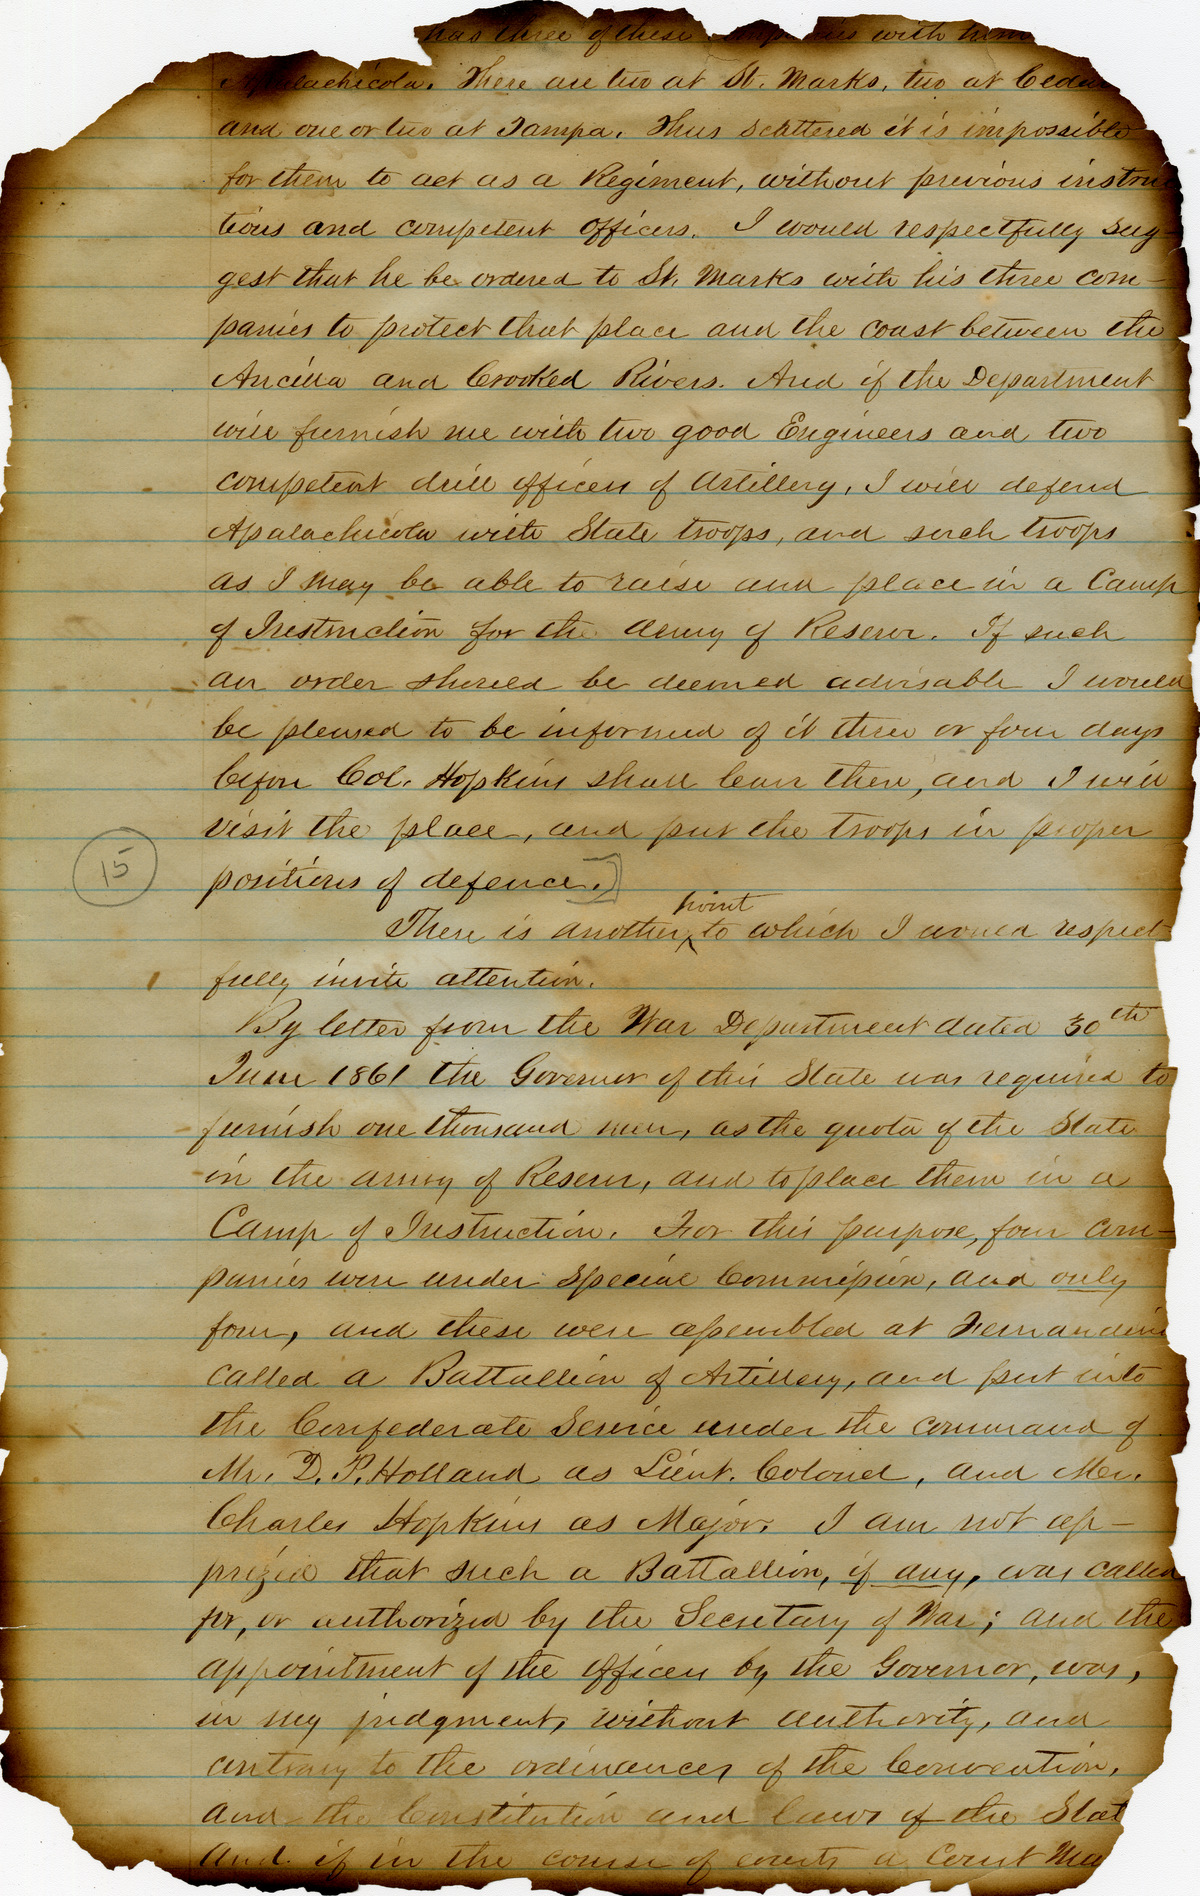 has three of these companies with him
Apalachicola. There are two at St. Marks, two at Cedar
and one or two at Tampa. Thus scattered it is impossible
for them to act as a Regiment, without previous instruc
tions and competent officers. I would respectfully sug-
gest that he be ordered to St. Marks with his three com-
panies to protect that place and the coast between the
Aucilla and Crooked Rivers. And if the Department
will furnish me with two good Engineers and two
competent drill officers of Artillery, I will defend
Apalachicola with State troops, and such troops
as I may be able to raise and place in a Camp
of Instruction for the Army of Reserve. If such
an order should be deemed advisable I would
be pleased to be informed of it three or four days
before Col. Hopkins shall leave there, and I will
visit the place, and put the troops in proper
positions of defence.]
15
There is another point to which I would respect
fully invite attention.
By letter from the War Department dated 30th
June 1861 the Governor of this State was required to
furnish one thousand men, as the quota of the State
in the army of Reserve, and to place them in a
Camp of Instruction. For this purpose, four com-
panies were under special Commission, and only
four, and these were assembled at Fernandina
called a Battallion of Artillery, and put into
the Confederate Service under the command of
Mr. D. P. Holland as Lieut. Colonel, and Mr.
Charles Hopkins as Major. I am not ap-
prized that such a Battallion, if any, was called
for, or authorized by the Secretary of War; and the
appointment of the officers by the Governor, was,
in my judgment, without authority, and
contrary to the ordinances of the Convention,
and the Constitution and laws of the Stat
And if in the course of events a Court Ma